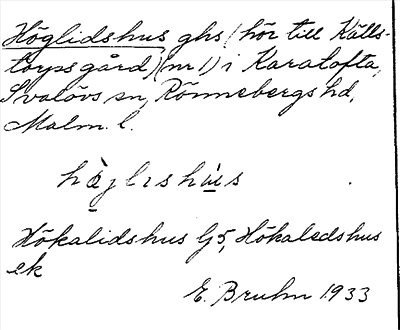 Höglidshus ghs (hör till Källs-
torps gård) (nr 1) i Karatofta,
Svalövs sn, Rönnebergs hd,
Malm. l.
Hökalidshus G5, Hökaledshus
ek
E. Bruhn 1933